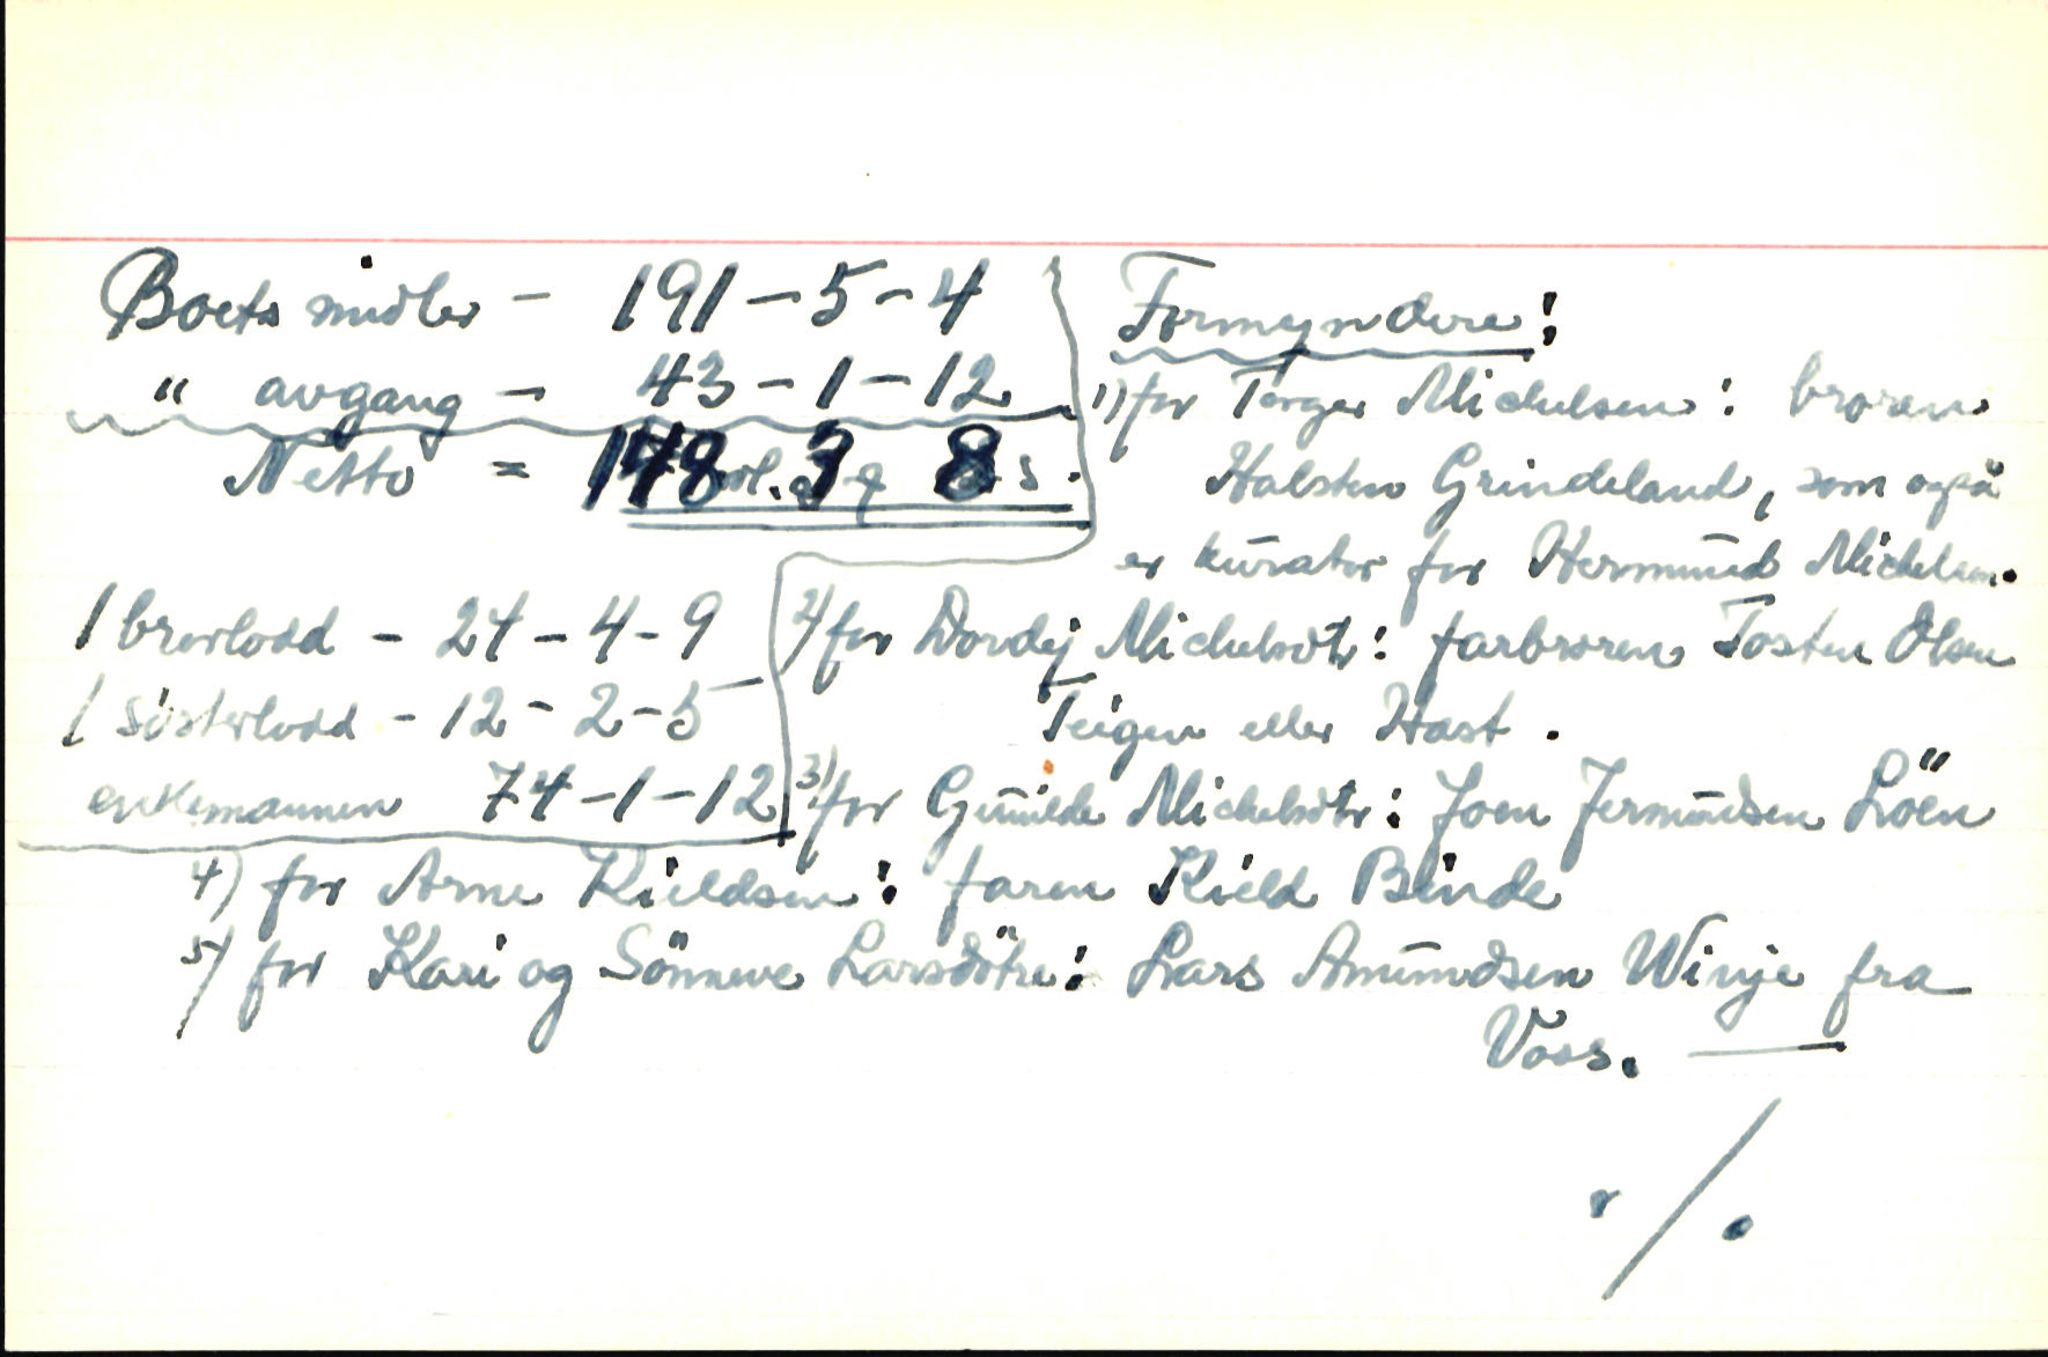 Boets midler - 191 - 5 - 4
" avgang - 43 - 1 - 12
Netto = 148 3 8 s.
1 brorlodd - 24 - 4 - 9
1 søsterlodd - 12 - 2 - 5
enkemannen 74 - 1 - 12
Formyndere:
1) for Torger Michelsen: broren
Halsten Grindeland, som også
er kurator for Hermund Michelsen.
2) for Dordej Michelsdtr: farbroren Tosten Olsen
Teigen eller Hast.
3) for Gunilde Michelsdtr: Joen Jermundsen Löen
4) for Arne Kieldsen: faren Kield Binde
5) for Kari og Sönneve Larsdötre: Lars Amundsen Winje fra
Voss. —
./.